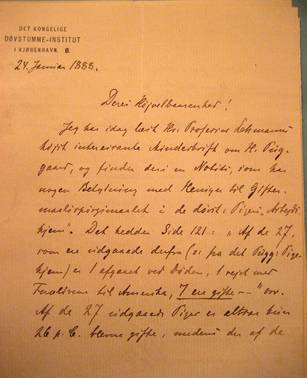 DET KONGELIGE
DØVSTUMME-INSTITUT
I KJØBENHAVN Ø.
24. Januar 1888.
Deres Højvelbaarenhed!
Jeg har idag læst Hr. Professor Lehmanns
højst interessante Mindeskrift om H. Pug-
gaard, og finder deri en Notits, som har
nogen Betydning med Hensyn til Gifter-
maalsspørgsmaalet i de døvst. Pigers Arbejds-
hjem. Det hedder Side 121: "Af de 27,
som ere udgaaede derfra (ɔ: fra det Pugg. Pige-
hjem) er 1 afgaaet ved Døden, 1 rejst med
Familien til Amerika, 7 ere gifte — " osv.
Af de 27 udgaaede Piger er altsaa
26 p. C. blevne gifte, medens der af de